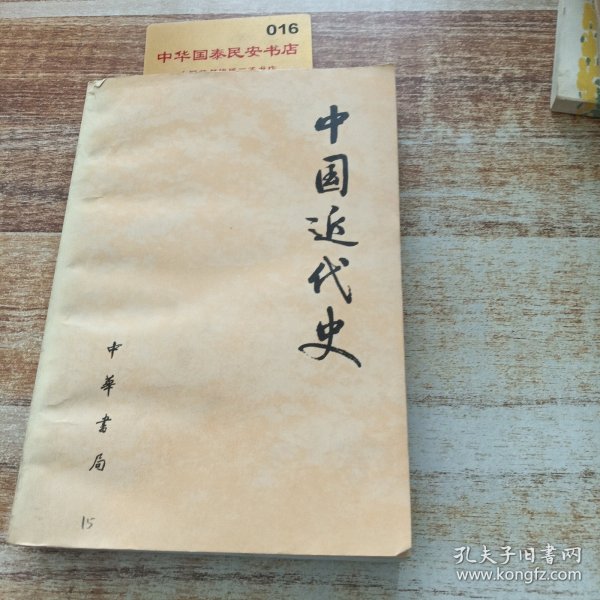 016
中华国泰民安书店
中国近代史
中华書局
15
孔夫子旧書网
www.kongfz.com